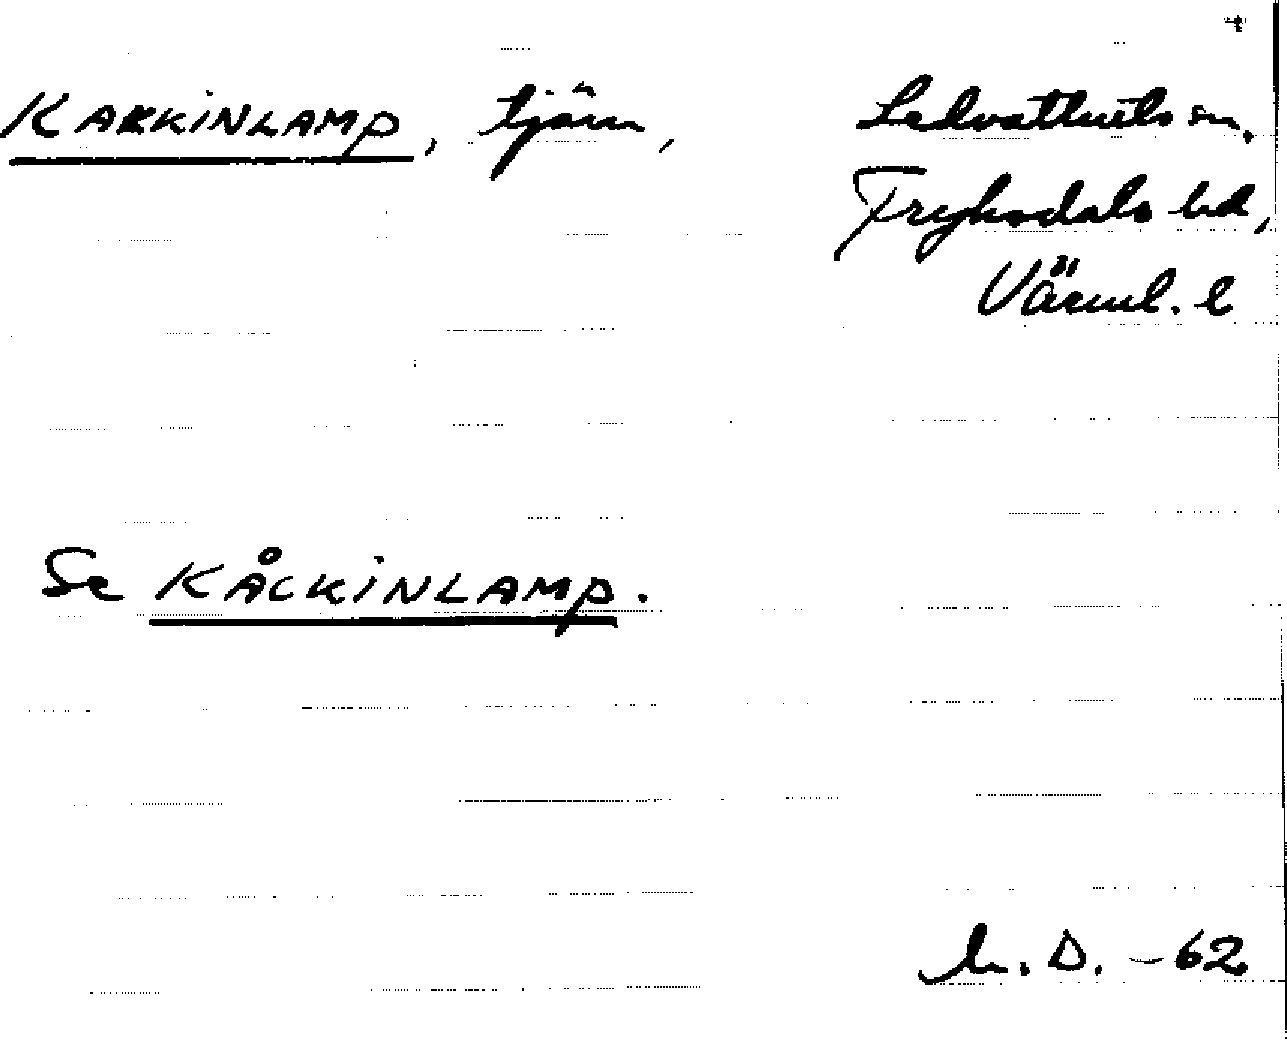 KAKKINLAMP, tjärn, Ledvattnets sn,
Fryksdals hd,
Värml. l
Se KÅCKINLAMP.
D. -62